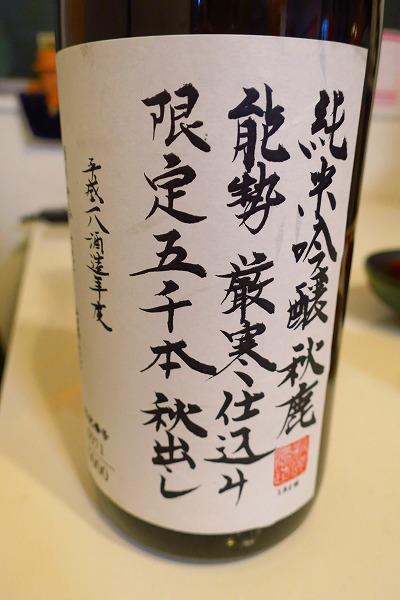 純米吟醸 秋鹿
能勢 厳寒仕込み
限定五千本 秋出し
平成一八酒造年度